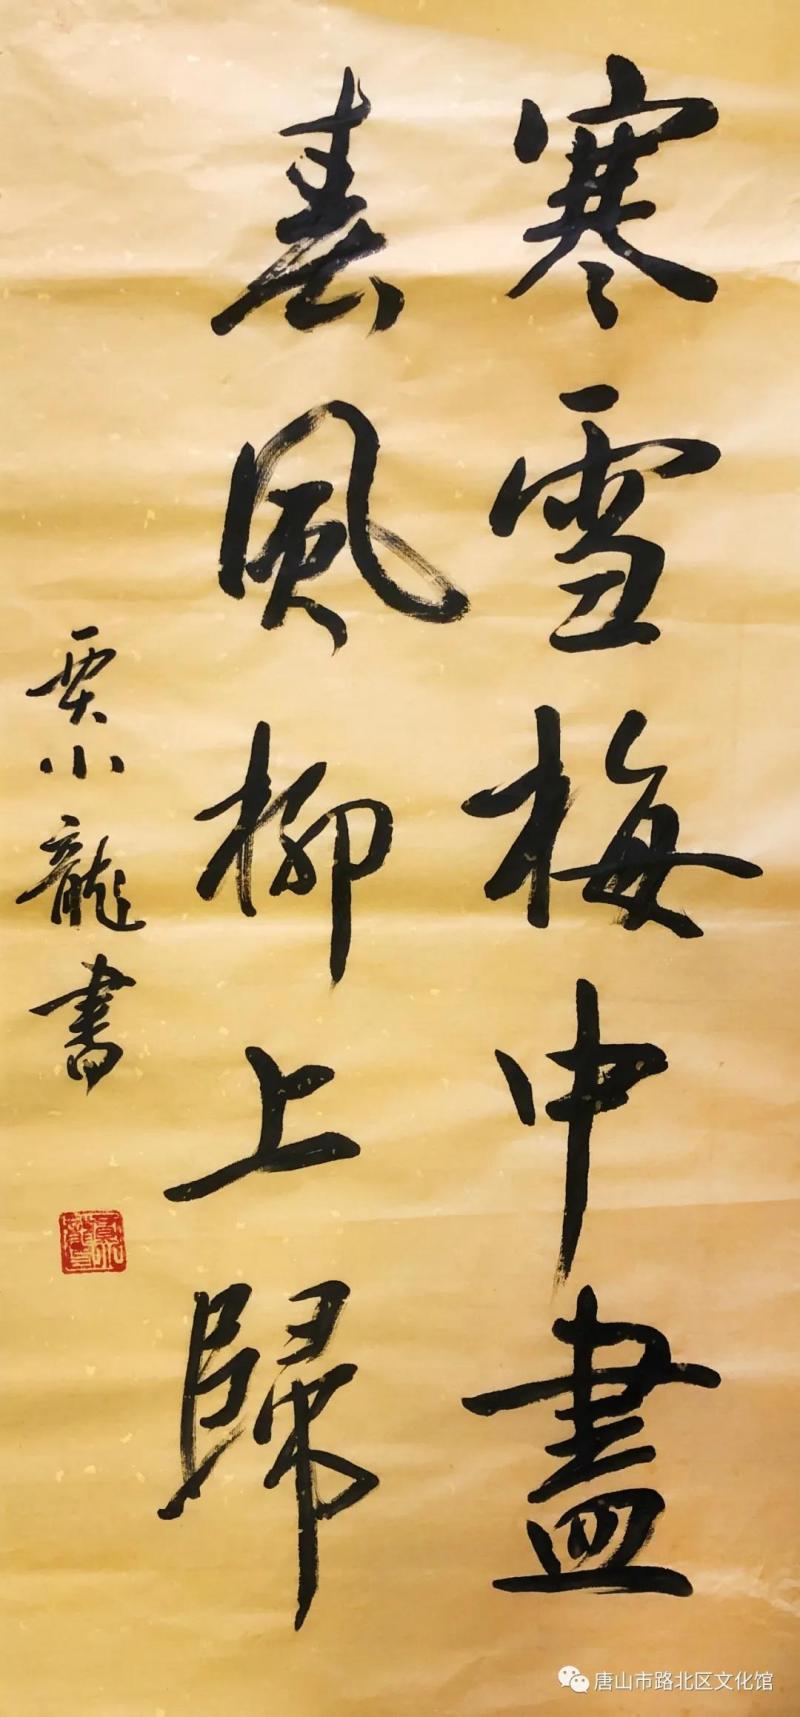 寒雪梅中盡
春風柳上歸
栗小龍書
唐山市路北区文化馆